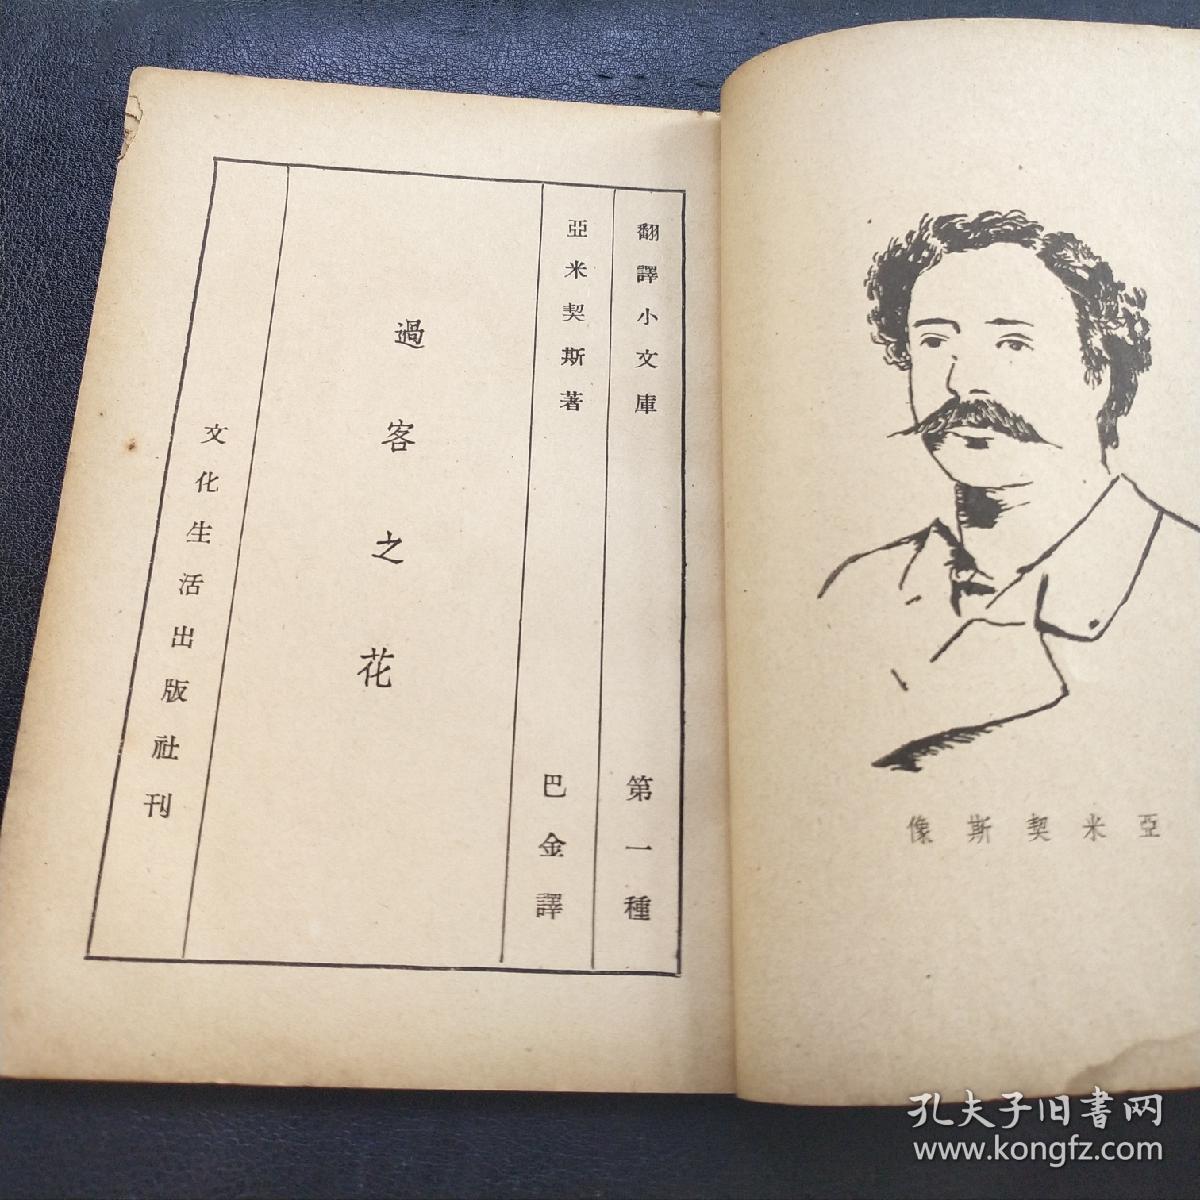 翻譯小文庫 第一種
亞米契斯著 巴金譯
過客之花
文化生活出版社刊
亞米契斯像
孔夫子旧書网
www.kongfz.com